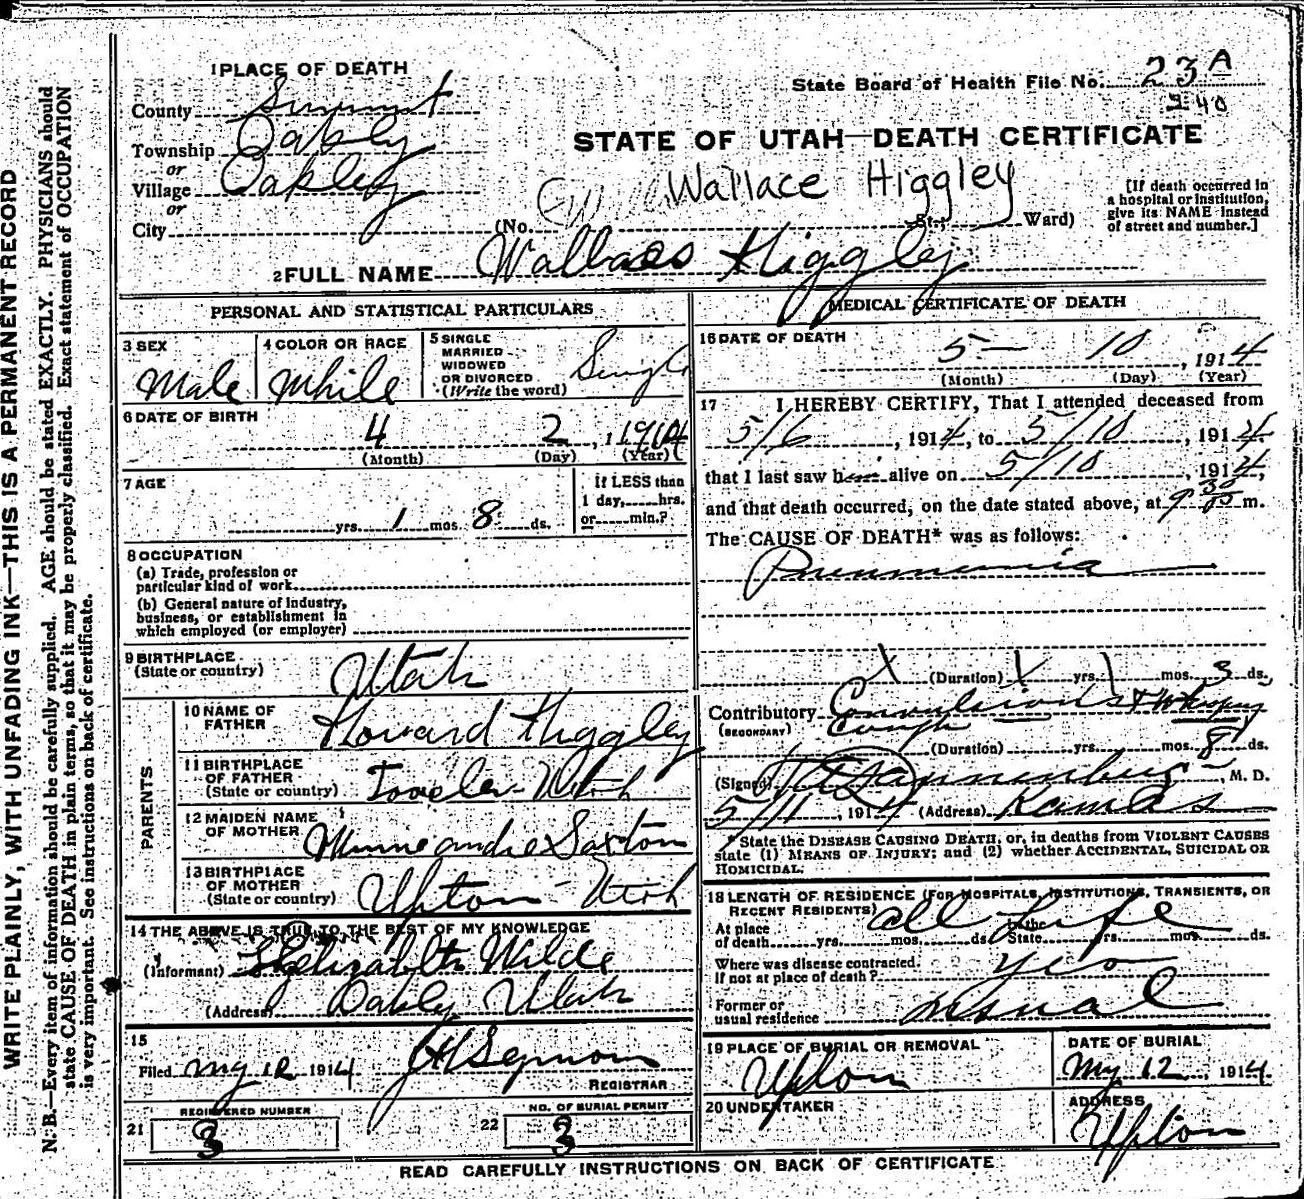 WRITE PLAINLY, WITH UNFADING INK—THIS IS A PERMANENT RECORD
N. B.—Every item of information should be carefully supplied. AGE should be stated EXACTLY. PHYSICIANS should
state CAUSE OF DEATH in plain terms, so that it may be properly classified. Exact statement of OCCUPATION
is very important. See instructions on back of certificate.
1 PLACE OF DEATH
County Summit
Township Oakly
or
Village Oakley
or
City
State Board of Health File No. 23 A
340
STATE OF UTAH—DEATH CERTIFICATE
Wallace Higgley
(No. St.; Ward)
[If death occurred in
a hospital or institution,
give its NAME instead
of street and number.]
2 FULL NAME Wallace Higgley
PERSONAL AND STATISTICAL PARTICULARS
3 SEX
Male
4 COLOR OR RACE
White
5 SINGLE
MARRIED
WIDOWED
OR DIVORCED
(Write the word)
Single
6 DATE OF BIRTH
4 2, 1914
(Month) (Day) (Year)
7 AGE
yrs. 1 mos. 8 ds.
If LESS than
1 day, hrs.
or min.?
8 OCCUPATION
(a) Trade, profession or
particular kind of work
(b) General nature of industry,
business, or establishment in
which employed (or employer)
9 BIRTHPLACE
(State or country)
Utah
PARENTS
10 NAME OF
FATHER
Howard Higgley
11 BIRTHPLACE
OF FATHER
(State or country)
Utah
12 MAIDEN NAME
OF MOTHER
Saxton
13 BIRTHPLACE
OF MOTHER
(State or country)
Upton - Utah
14 THE ABOVE IS TRUE TO THE BEST OF MY KNOWLEDGE
(Informant) Elizabeth Wilde
(Address) Oakly Utah
15
Filed My 12 1914
REGISTRAR
REGISTERED NUMBER
21 3
NO. OF BURIAL PERMIT
22 3
MEDICAL CERTIFICATE OF DEATH
16 DATE OF DEATH
5 — 10, 1914
(Month) (Day) (Year)
17 I HEREBY CERTIFY, That I attended deceased from
5/6, 1914, to 5/10, 1914
that I last saw him alive on 5/10, 1914,
and that death occurred, on the date stated above, at 9 30 m.
The CAUSE OF DEATH* was as follows:
Pneumonia
(Duration) yrs. mos. 3 ds.
Contributory Convulsions & Whooping
(SECONDARY) Cough
(Duration) yrs. mos. 8 ds.
(Signed) M. D.
5/11, 1914 (Address) Kamas
* State the DISEASE CAUSING DEATH, or, in deaths from VIOLENT CAUSES
state (1) MEANS OF INJURY; and (2) whether ACCIDENTAL, SUICIDAL OR
HOMICIDAL.
18 LENGTH OF RESIDENCE (FOR HOSPITALS, INSTITUTIONS, TRANSIENTS, OR
RECENT RESIDENTS)
all Life
At place
of death yrs. mos. ds. In the State yrs. mos. ds.
Where was disease contracted
If not at place of death? yes
Former or
usual residence usual
19 PLACE OF BURIAL OR REMOVAL
Upton
DATE OF BURIAL
My 12, 1914
20 UNDERTAKER
ADDRESS
Upton
READ CAREFULLY INSTRUCTIONS ON BACK OF CERTIFICATE